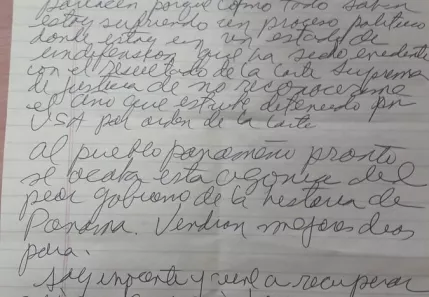 porque como todo saben
estoy sufriendo un proceso politico
donde estoy en un estado de
indefension que ha sido evidente
con el resultado de la Corte Suprema
de justicia de no reconocerme
el año que estuve detenido en
USA por orden de la Corte
al pueblo panameño pronto
se acaba esta agonia del
peor gobierno de la historia de
Panama. Vendran mejores dias
para.
Soy inocente y a recuperar